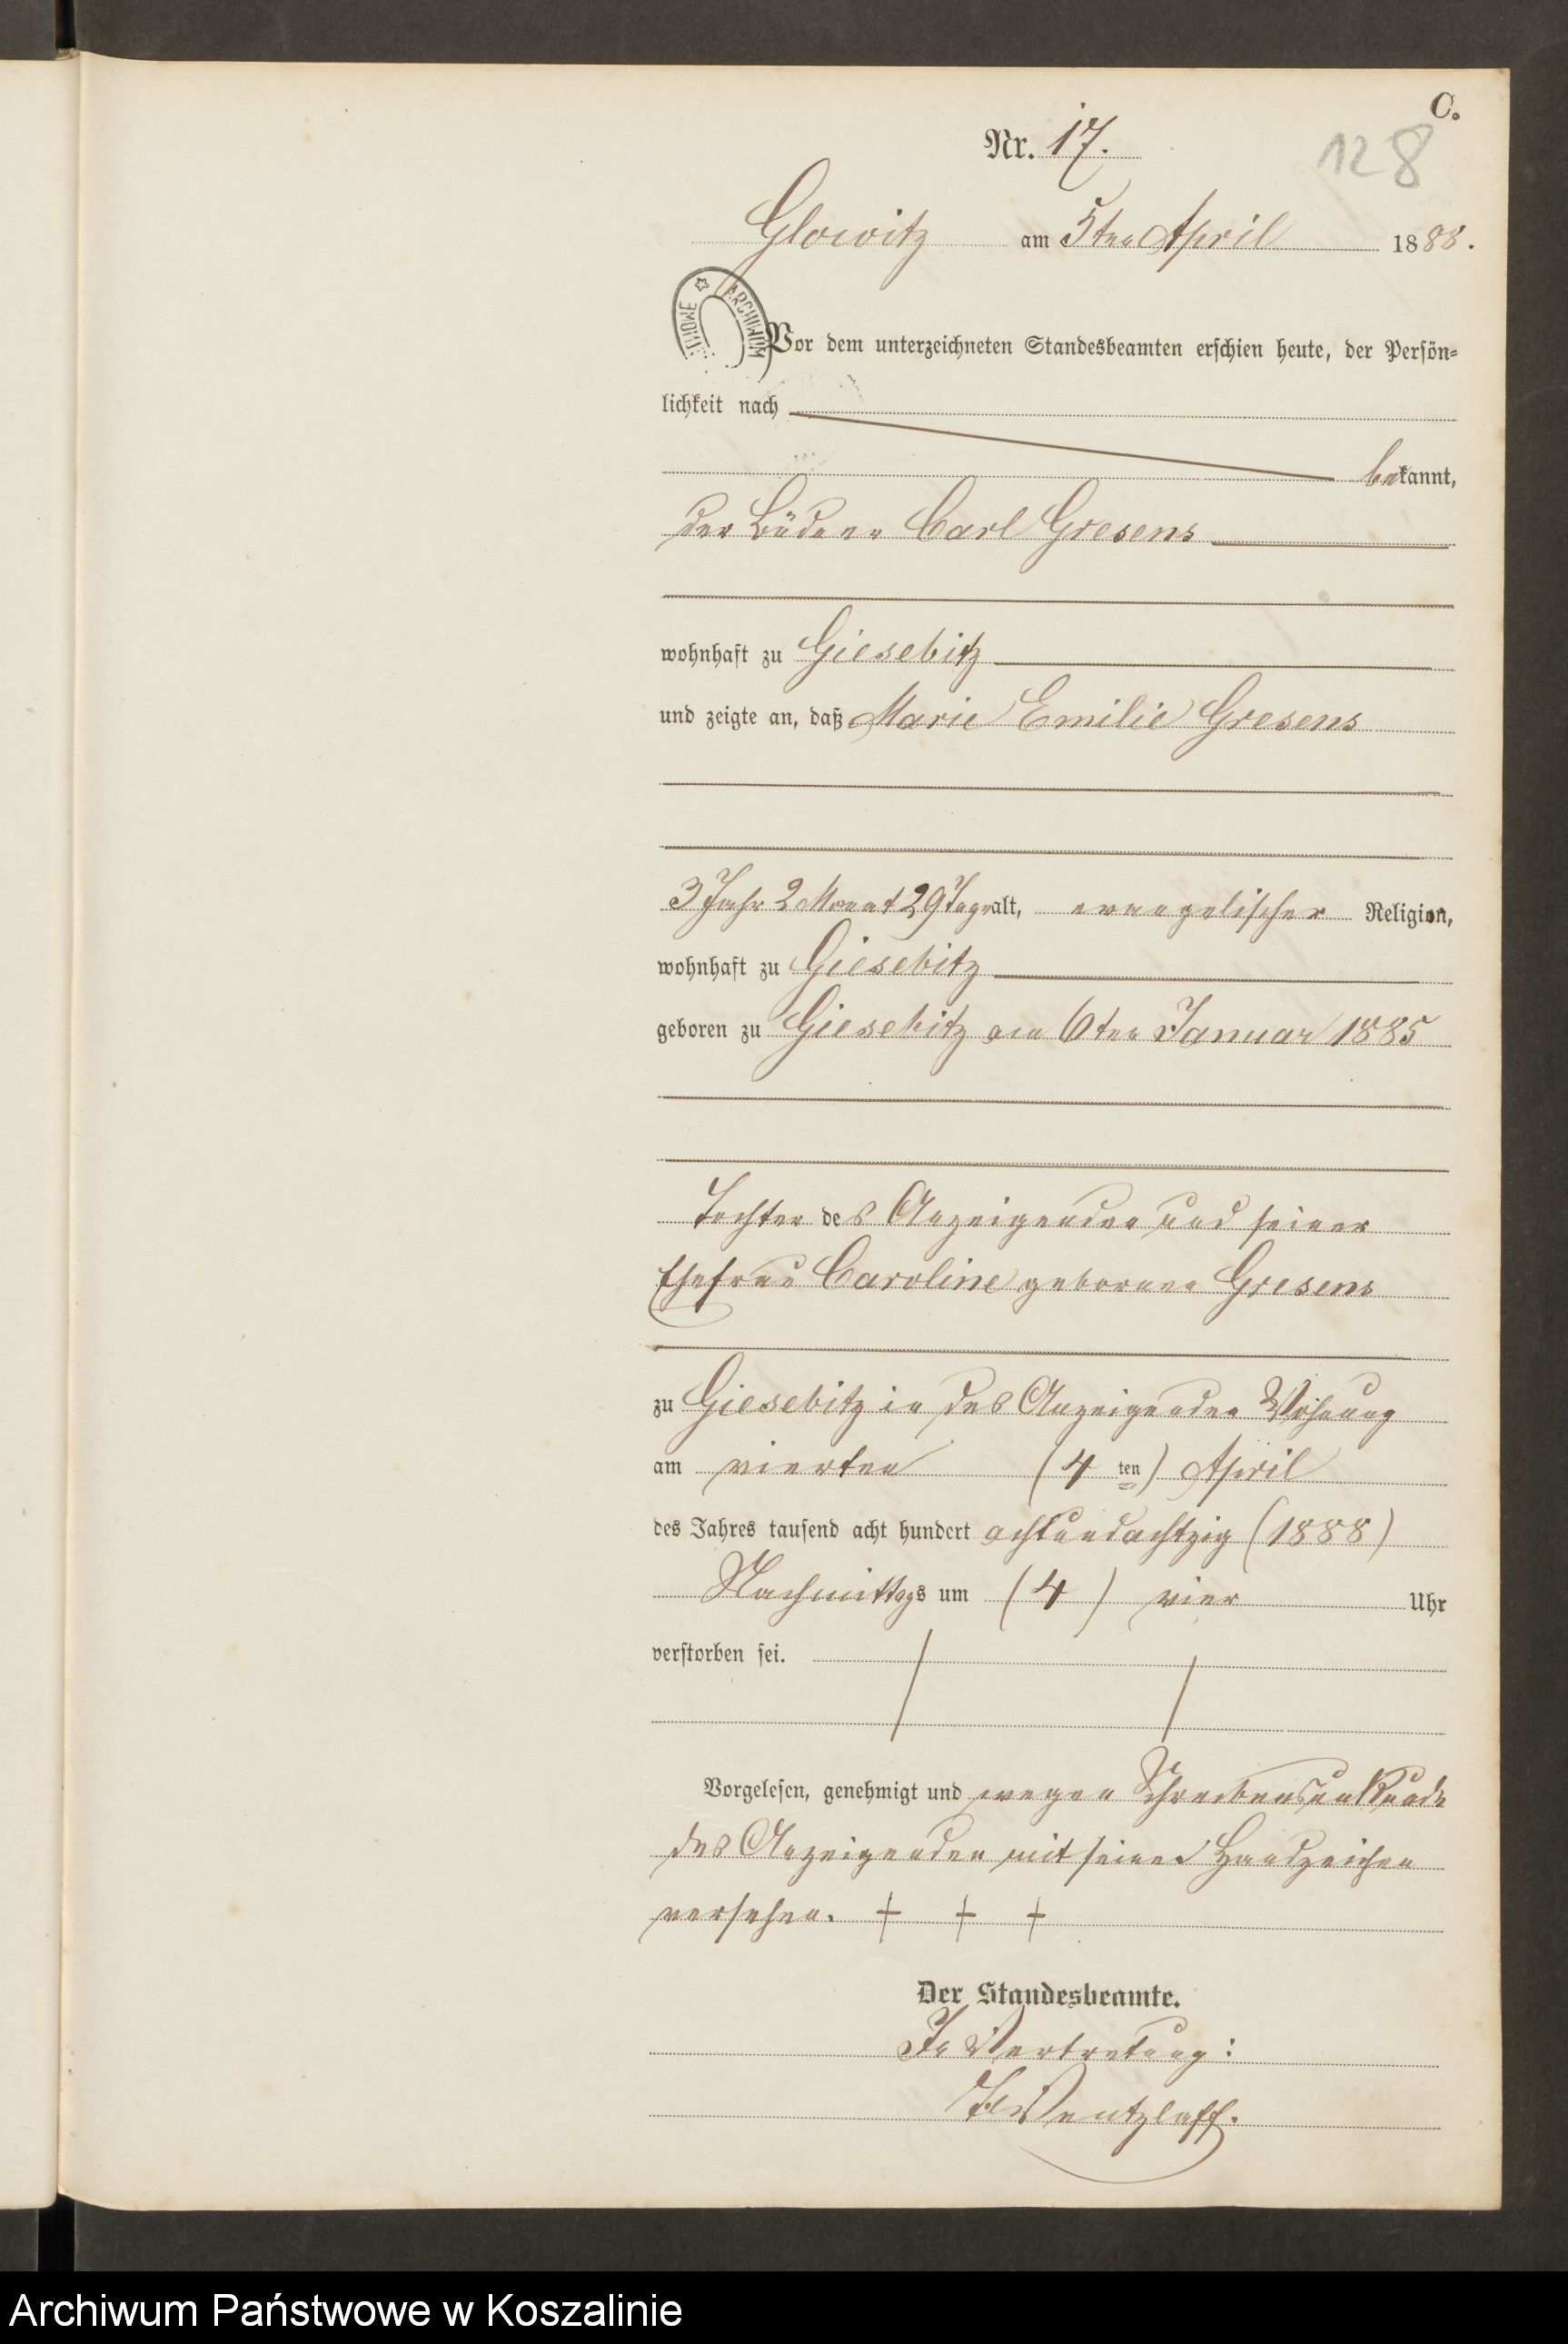 C.
Nr. 17.
128
Glowitz am 5ten April 1888.
ARCHIWUM
Vor dem unterzeichneten Standesbeamten erschien heute, der Persön=
lichkeit nach
bekannt,
der Büdner Carl Gresens
wohnhaft zu Giesebitz
und zeigte an, daß Marie Emilie Gresens
3 Jahr 2 Monat 29 Tage alt, evangelischer Religion,
wohnhaft zu Giesebitz
geboren zu Giesebitz am 6ten Januar 1885
Tochter des Anzeigenden und seiner
Ehefrau Caroline geborene Gresens
zu Giesebitz in des Anzeigenden Wohnung
am vierten (4ten) April
des Jahres tausend acht hundert achtundachtzig (1888)
Nachmittags um (4) vier Uhr
verstorben sei.
Vorgelesen, genehmigt und wegen Schreibensunkunde
des Anzeigenden mit seinen Handzeichen
versehen. + + +
Der Standesbeamte.
In Vertretung:
Wentzlaff.
Archiwum Państwowe w Koszalinie